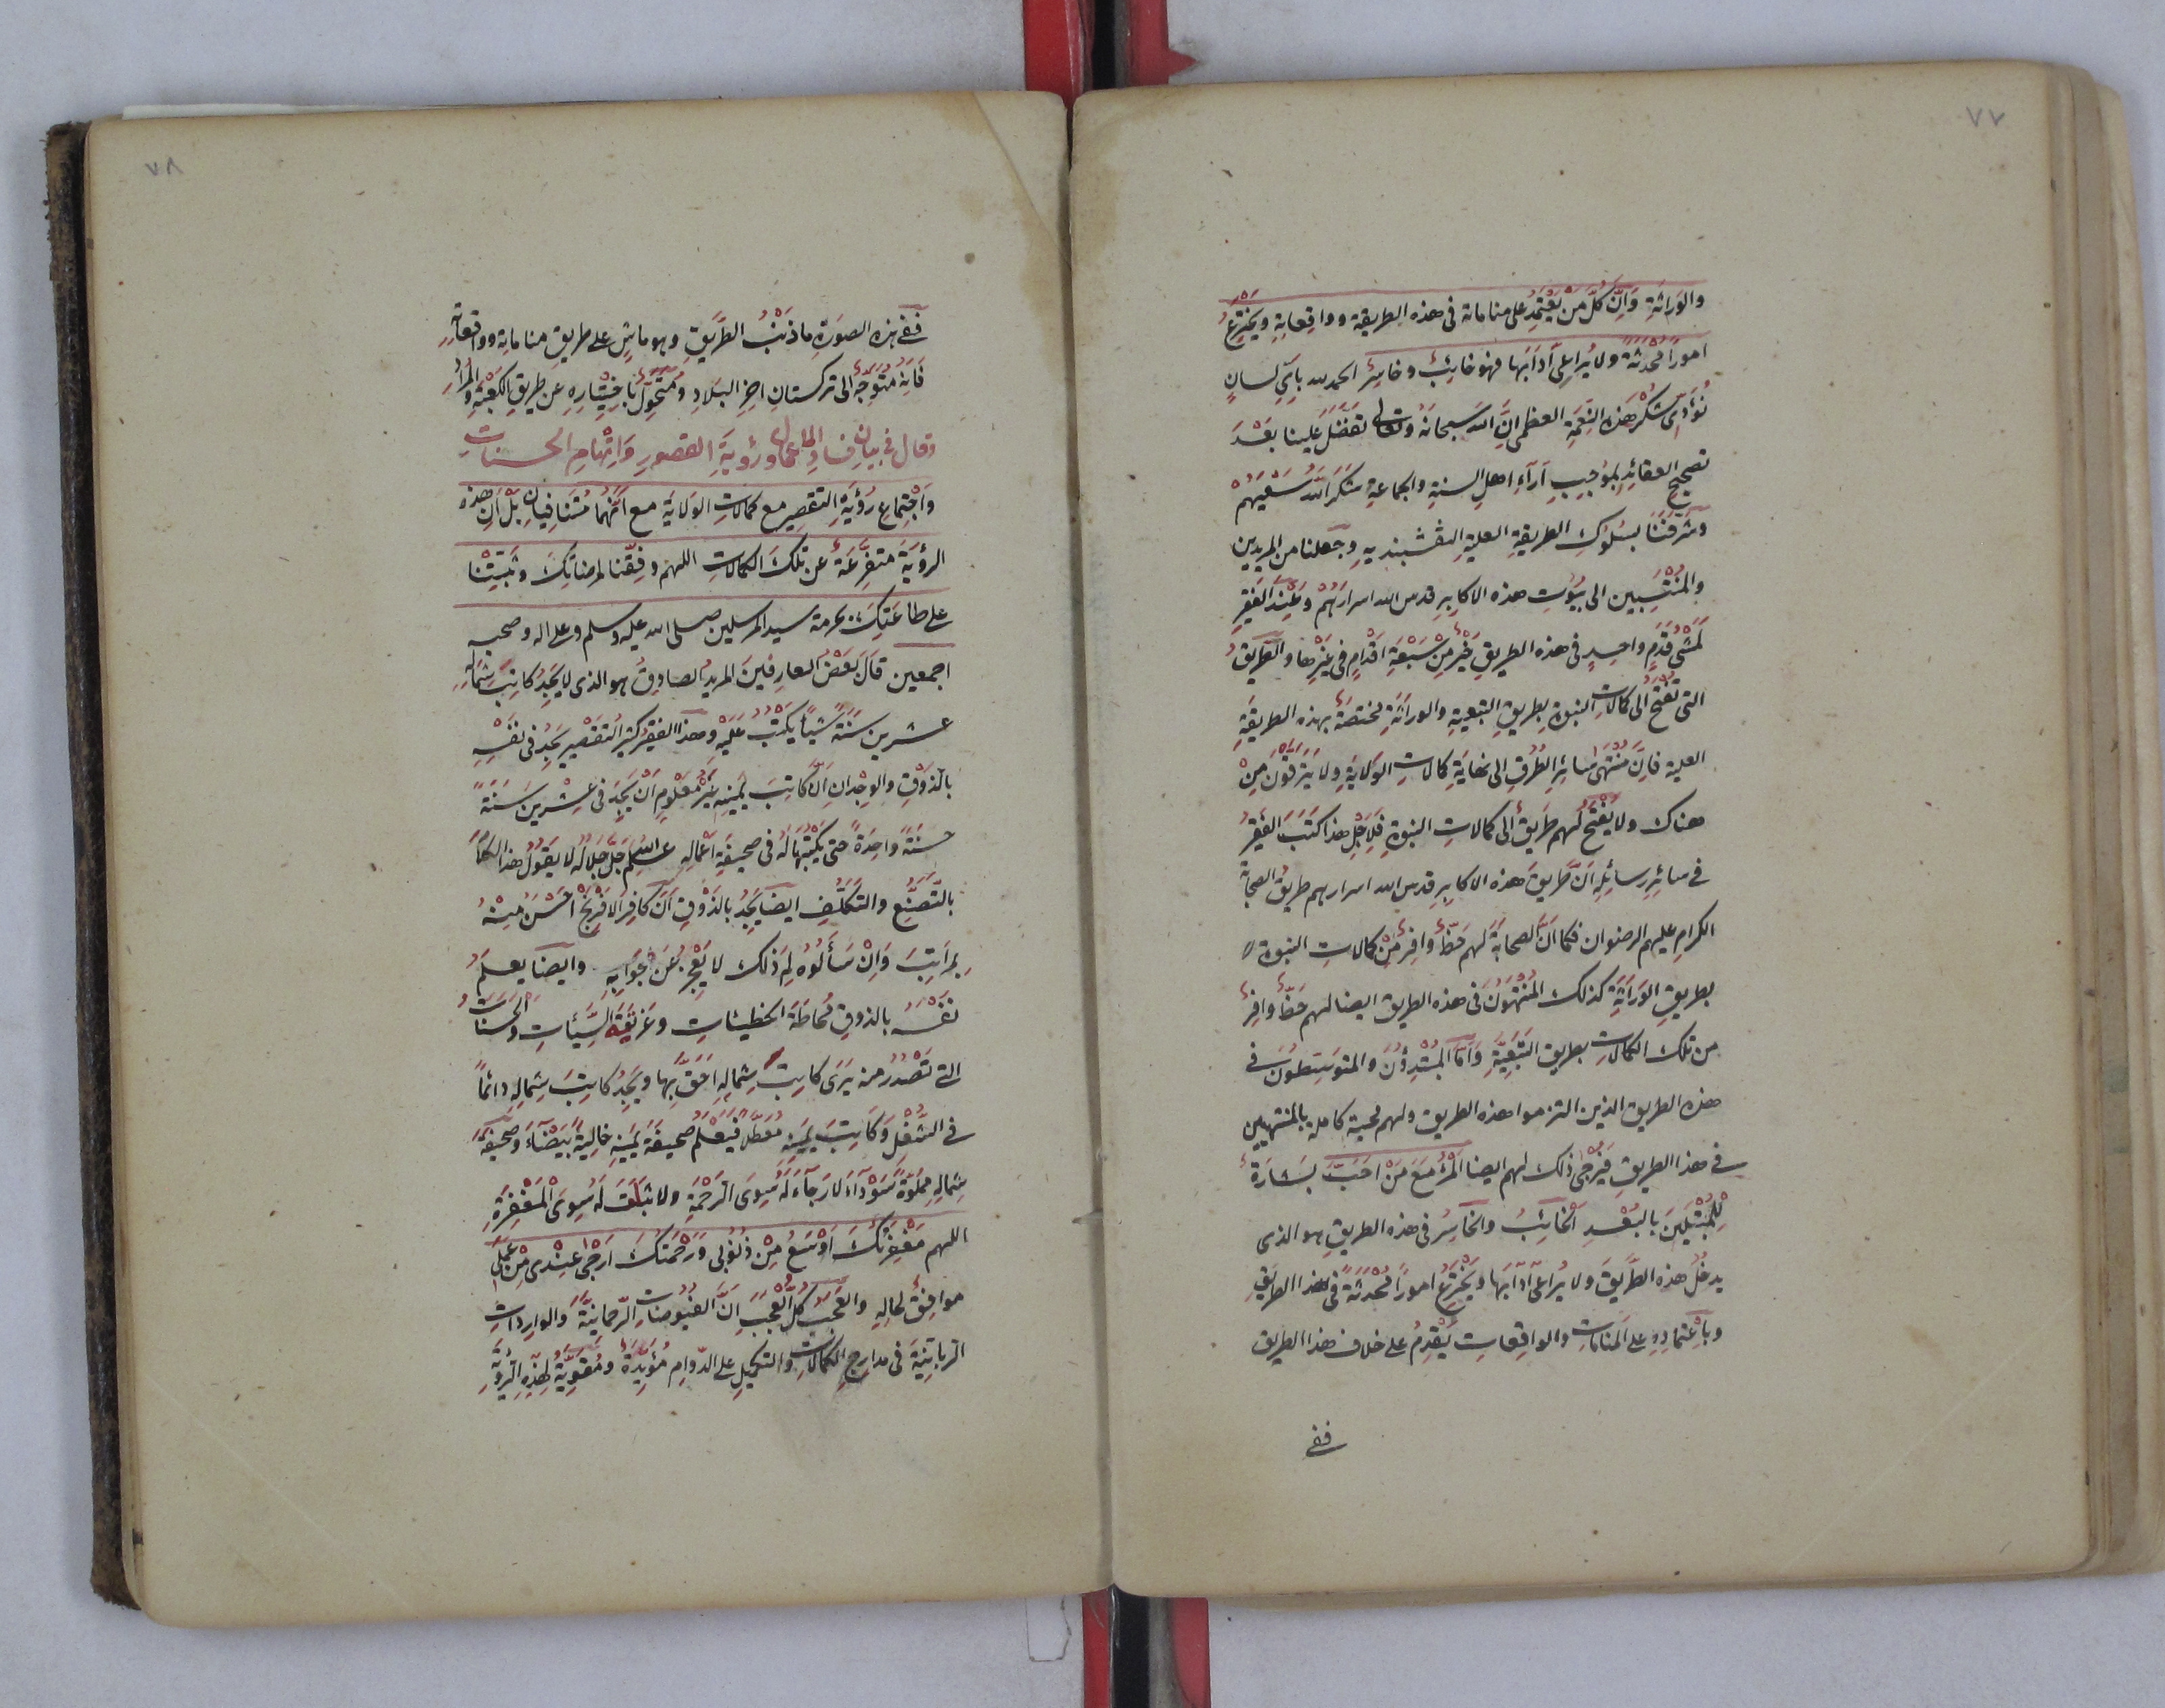 ٧٧
والوَرَاثَةِ وَاِنَّ كُلَّ مَنْ يَعْتَمِدُ على مناماته فى هذه الطريقة وواقِعاتِهِ ويَخْتَرِعُ
امورًا مُحْدَثَةً ولا يُراعِى آدابَها فهو خائِبٌ وخاسِرٌ الحمد لله بِاَىِّ لِسانٍ
نُؤَدِّى شُكْرَ هذه النِّعْمَةِ العظمى اِنَّ الله سبحانَهُ وتعالى تَفَضَّلَ علينا بَعْدَ
تصحيحِ العقائِدِ بمُوجِبِ آراءِ اهلِ السنةِ والجماعةِ شَكَرَ اللهُ سَعْيَهُمْ
وشَرَّفَنَا بسُلُوكِ الطريقةِ العليةِ النقشبنديهِ وجَعَلَنا من المريدين
والمُنْتَسِبين الى بُيُوتِ هذه الاكابِرِ قدس الله اسرارَهُمْ وعِنْدَ الفقيرِ
لَمَشْىُ قَدَمٍ واحِدٍ فى هذه الطريقِ خَيْرٌ مِنْ سَبْعَةِ اَقْدامٍ فى غَيْرِها والطَّرِيقُ
التى تُفْتَحُ الى كمالاتِ النبوةِ بطريقِ التبعيةِ والوراثةِ مختصَّةٌ بهذه الطريقةِ
العلية فاِنَّ مُنْتَهَى سائِرِ الطُرُقِ الى نهايَةِ كمالاتِ الوَلايَةِ ولا يَتَرَقَّوْنَ مِنْ
هناك ولا يُفْتَحُ لهم طَرِيقٌ الى كمالاتِ النبوةِ فَلِاَجْلِ هذا كَتَبَ الفقيرُ
فى سائِرِ رسائِلِهِ اَنَّ طَرِيقَ هذه الاكابِرِ قدس الله اسرارهم طريقُ الصحابةِ
الكرامِ عليهم الرضوان فكما اَنَّ الصحابَةَ لهم حَظٌّ وافِرٌ مِنْ كمالاتِ النبوة
بطريقِ الوَرَاثَةِ كذلك المُنْتَهُونَ فى هذه الطريق ايضا لهم حَظٌّ وافِرٌ
من تلك الكمالات بطريق التَبَعِيَّةِ وَاَمَّا المُبْتَدِؤُنَ والمتوسِطُونَ فى
هذه الطريق الذين التزموا هذه الطريق ولهم محبة كاملة بالمنتهيين
فى هذا الطريقِ فَيُرْجَى ذلك لهم ايضا اَلْمَرْءُ مَعَ مَنْ اَحَبَّ بَشارَةٌ
لِلْمُبْتَلِينَ بالبُعْدِ اَلْخَائِبُ والخاسِرُ فى هذه الطريقِ هو الذى
يدخُلُ هذه الطَّرِيقَ ولا يُراعِى آدابَها ويَخْتَرِعُ امورًا مُحْدَثَةً فى هذا الطريقِ
وبِاعْتمادِهِ على المنامات والواقِعات يُقْدِمُ على خلاف هذا الطريق
ففى
٧٨
ففى هذه الصورَةِ ما ذَنْبُ الطَّرِيقِ وهو ماشٍ على طريقِ مناماتِهِ وواقِعاتِهِ
فَاِنَّهُ مُتَوَجِّهٌ الى تركستان آخِرِ البلادِ ومُتَحَوِّلٌ باخْتِيارِهِ عن طريقِ الكَعْبَةِ والمُرادِ
وقال فى بيانِ فسادِ الاعمالِ ورُؤيَةِ القصورِ وَاتِّهامِ الحسنات
وَاجْتِماعِ رُؤيَةِ التقصِيرِ مع كمالاتِ الوَلايَةِ مع اَنَّهُمَا مُتَنَافِيَانِ بَلْ اَنَّ هذه
الرؤيَةَ متفرِّعَةٌ عن تلك الكمالات اللهم وَفِّقْنا لمرضاتِكَ وثَبِّتْنا
على طاعَتِكَ بحرمة سيد المرسلين صلى الله عليه وسلم وعلى اله وصحبه
اجمعين قَالَ بَعْضُ العارِفينَ المريدُ الصادِقُ هو الذى لا يَجِدُ كاتِبُ شِمالِهِ
عشرين سَنَةً شَيْئاً يَكْتُبُ عَلَيْهِ وهذا الفقيرُ كثيرُ التقصيرِ يَجِدُ فى نَفْسِهِ
بالذَّوْقِ والوِجْدانِ اَنَّ كاتِبَ يَمينِهِ غَيْرُ مَعْلُومٍ اَنْ يَجِدَ فى عِشْرِينَ سَنَةً
حسنةً واحِدَةً حتى يَكْتُبَهَا لَهُ فى صحيفَةِ اَعْمالِهِ عِلْمُ اللهِ جَلَّ جَلالُه لا يَقُولُ هذا الكلامَ
بالتَّصَنُّعِ والتَكَلُّفِ ايضا يَجِدُ بالذَّوْقِ اَنَّ كافِرَ الاَفْرَنْجِ اَحْسَنُ مِنْهُ
بِمَراتِبَ وَاِنْ سَأَلُوهُ لِمَ ذلك لا يَعْجِزُ عَنْ جَوابِهِ وايضا يعلَمُ
نفسَهُ بالذوقِ مُحاطَةَ الخطيئاتِ وغَرِيقَةَ السَّيِّئاتِ والحَسَناتُ
التى تَصْدُرُ منه يَرَى كاتِبَ شِمالِهِ اَحَقَّ بِها ويَجِدُ كاتِبَ شِمالِهِ دائماً
فى الشُّغْلِ وَكاتِبَ يمينِهِ مُعَطَّلًا فيَعْلَمُ صحيفَةَ يَمينِهِ خالِيَةً بَيْضَآءَ وصحيفَةَ
شِمالِهِ مملوّةً سَوْدآءَ لا رَجاءَ لَهُ سِوَى الرَحْمَةِ ولا لَهُ سِوَى المَغْفِرَةِ
اللهم مَغْفِرَتُكَ اَوْسَعُ مِنْ ذُنُوبى وَرَحْمَتُكَ اَرْجَى عِنْدِى مِنْ عَمَلِى
موافِقٌ لحالِهِ والعَجَبُ كُلَّ العَجَبِ اَنَّ الفيوضات الرحمانيَّةَ والوارِداتِ
الربانيَةَ فى مدارِجِ الكمالات والتكميلِ على الدّوامِ مُؤيّدَةٌ ومُقَوِّيَةٌ لِهذِهِ الرُّؤيَةِ